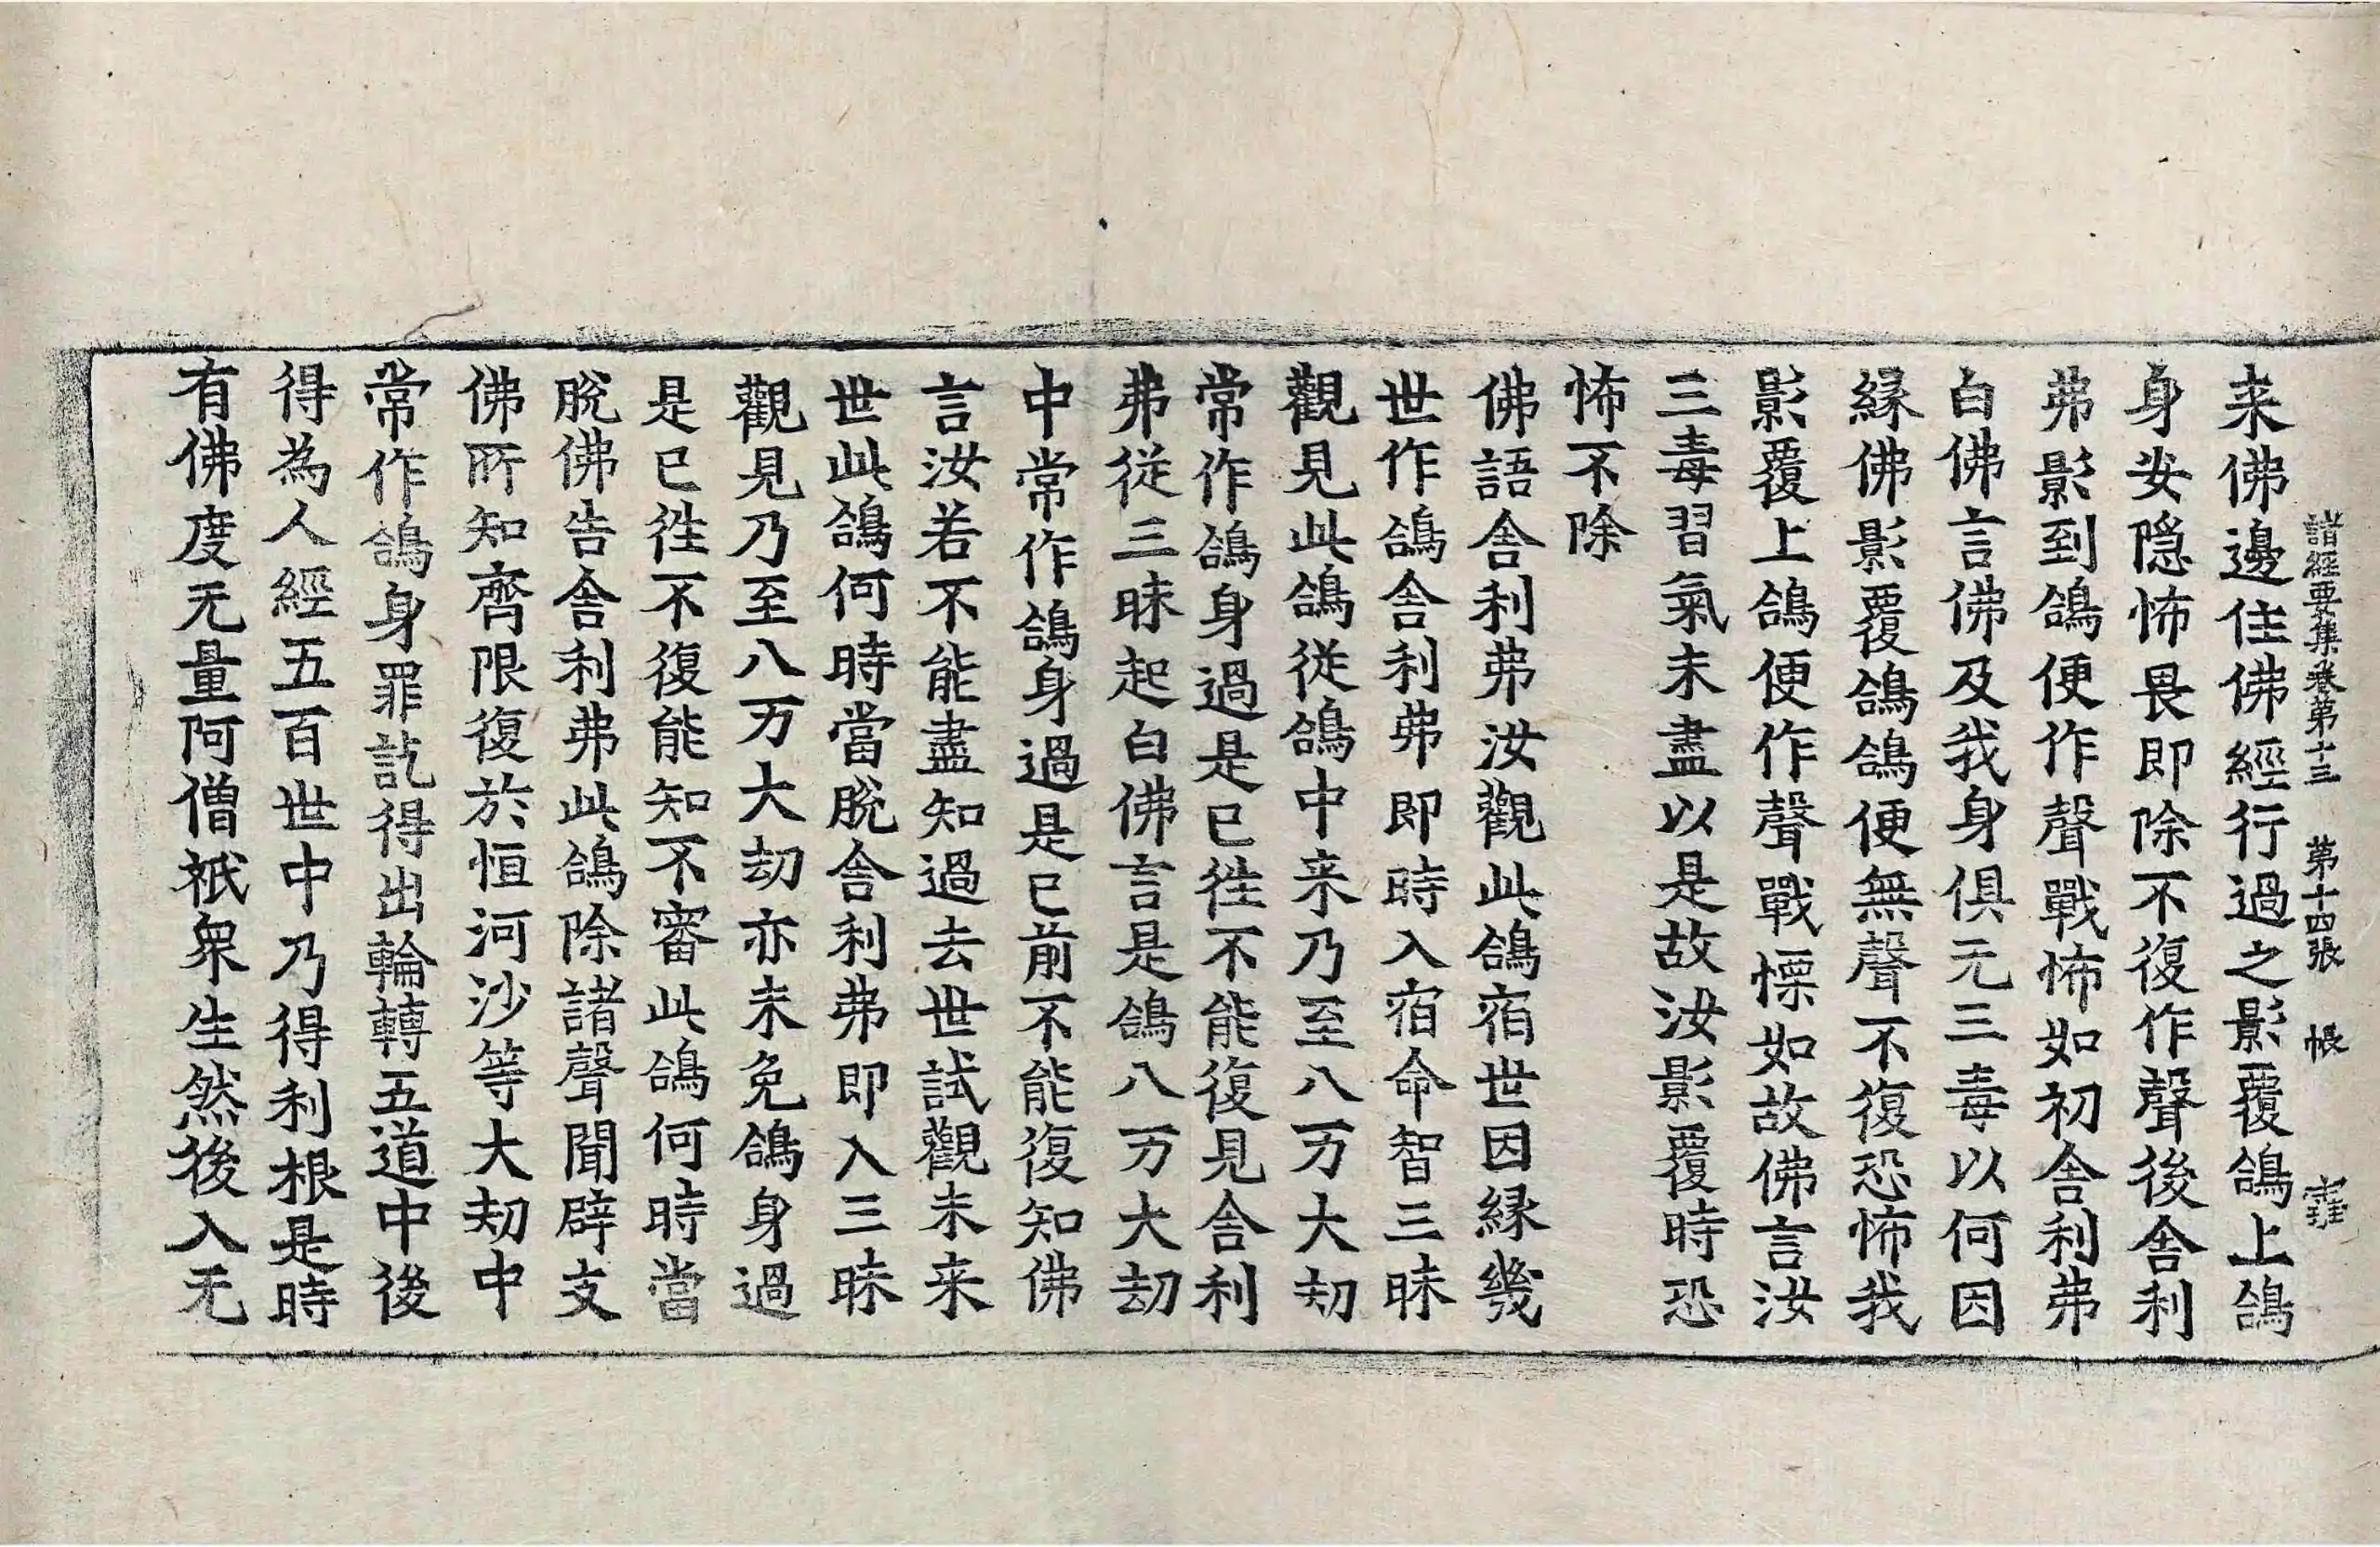 諸經要集卷第十三 第十四張 帳
来佛邊住佛經行過之影覆鴿上鴿
身安隱怖畏即除不復作聲後舎利
弗影到鴿便作聲戰怖如初舎利弗
白佛言佛及我身俱无三毒以何因
縁佛影覆鴿鴿便無聲不復恐怖我
影覆上鴿便作聲戰慄如故佛言汝
三毒習氣未盡以是故汝影覆時恐
怖不除
佛語舎利弗汝觀此鴿宿世因縁幾
世作鴿舎利弗即時入宿命智三昧
觀見此鴿從鴿中来乃至八万大劫
常作鴿身過是已徃不能復見舎利
弗從三昧起白佛言是鴿八万大劫
中常作鴿身過是已前不能復知佛
言汝若不能盡知過去世試觀未来
世此鴿何時當脫舎利弗即入三昧
觀見乃至八万大劫亦未免鴿身過
是已徃不復能知不審此鴿何時當
脫佛告舎利弗此鴿除諸聲聞辟支
佛所知齊限復於恒河沙等大劫中
常作鴿身罪訖得出輪轉五道中後
得為人經五百世中乃得利根是時
有佛度无量阿僧祇衆生然後入无